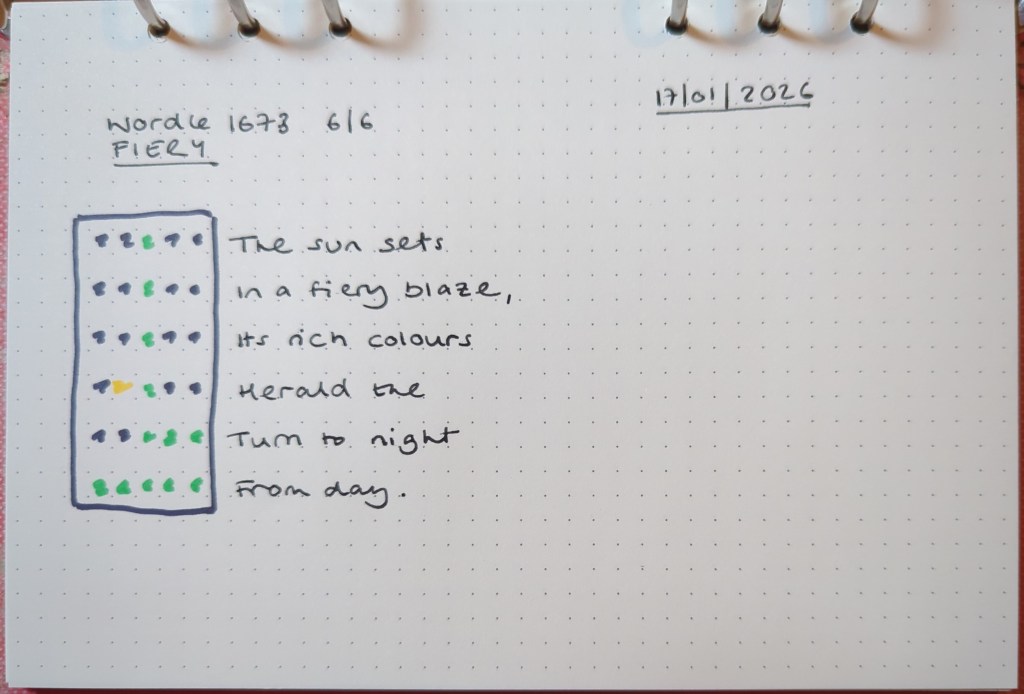 17/01/2026
Wordle 1673 6/6
FIERY
The sun sets
In a fiery blaze,
Its rich colours
Herald the
Turn to night
From day.